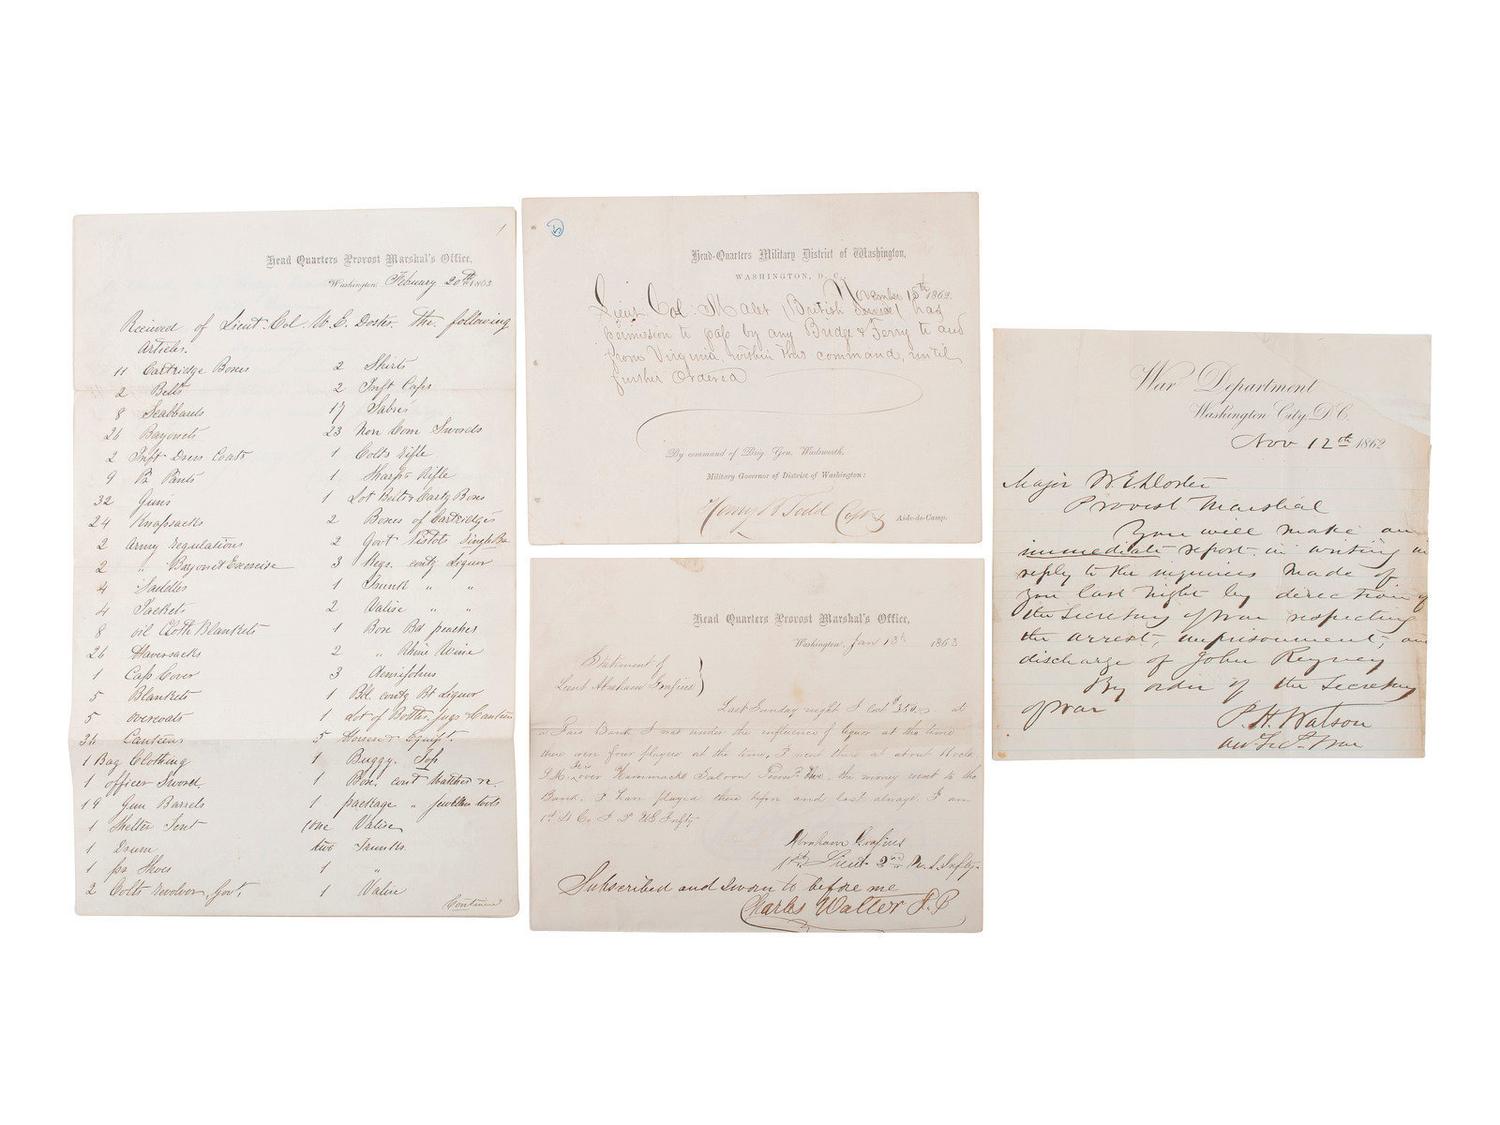 1
Head Quarters Provost Marshal's Office,
Washington, February 20th 1863
Received of Lieut. Col. W. E. Doster. The following
Articles.
11 Cartridge Boxes
2 Belts
8 Scabbards
26 Bayonets
2 Inft Dress Coats
9 Pr Pants
32 Guns
24 Knapsacks
2 Army Regulations
2 " Bayonet Exercise
4 Saddles
4 Jackets
8 oil Cloth Blankets
26 Haversacks
1 Cap Cover
5 Blankets
5 overcoats
36 Canteens
1 Bag Clothing
1 officer Sword
19 Gun Barrels
1 Shelter Tent
1 Drum
1 pr Shoes
2 Colts Revolver, Govt.
2 Shirts
2 Inft Caps
17 Sabres
23 Non Com Swords
1 Colts Rifle
1 Sharps Rifle
1 Lot Belts & Carty Boxes
2 Boxes of Cartridges
2 Govt Pistols Single
3 Kegs. conty Liquor
1 Trunk " "
2 Valise " "
1 Box Bd peaches
2 " Rhine Wine
3 Demijohns
1 Bbl. conty Bt Liquor
1 Lot of Bottles, Jugs & Canteen
5 Horses & Equipt.
1 Buggy. Top
1 Box. cont Watches &c.
1 package " Jewellers tools
one Valise
two Trunks
1 "
1 Valise
Continued
Head-Quarters Military District of Washington,
WASHINGTON, D. C., November 15th 1862.
Lieut Col: Malet (British Service) has
permission to pass by any Bridge & Ferry to and
from Virginia, within this command, until
further Ordered
By command of Brig. Gen. Wadsworth,
Military Governor of District of Washington:
Henry W Todd Capt & Aide-de-Camp.
Head Quarters Provost Marshal's Office,
Washington, Jan 13th 1863
Statement of
Lieut Abraham
Last Sunday night I lost $350.00 at
a Faro Bank I was under the influence of liquor at the time
there were four players at the time, I went there at about 11 oclk
P.M. over Hammacks Saloon the money went to the
Bank. I have played there before and lost always. I am
1st Lt Co.
Abraham
1st Lieut 2nd
Subscribed and Sworn to before me
Charles Walter J. P.
War Department
Washington City, D.C.
Nov 12th 1862
Major W E Doster
Provost Marshal
You will make an
immediate report in writing in
reply to the inquiries made of
you last night by direction of
the Secretary of War respecting
the arrest, imprisonment, and
discharge of John
By order of the Secretary
of War
P. H. Watson